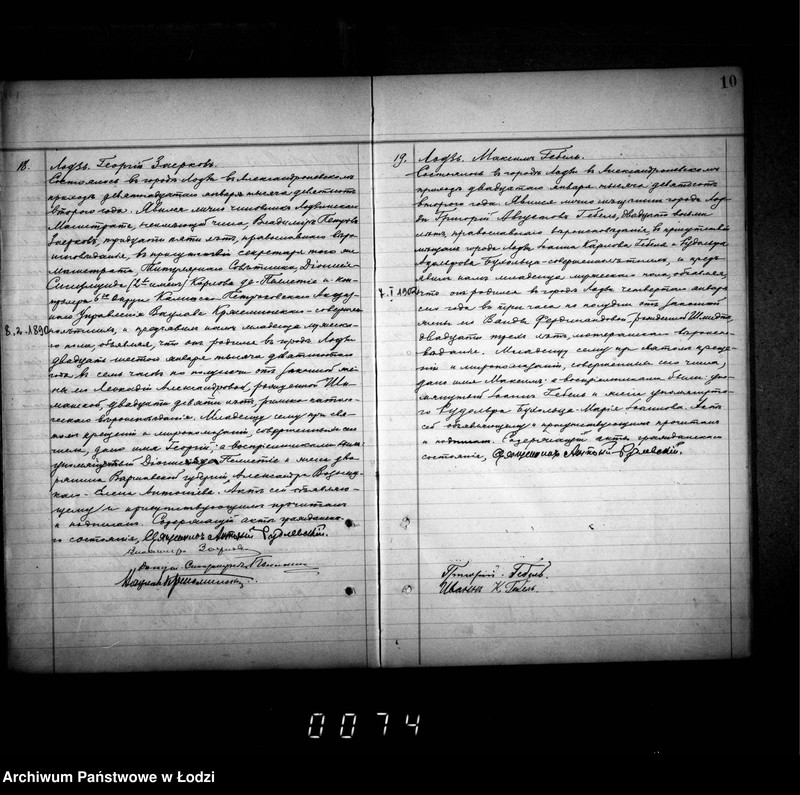 18. Лодзь. Георгій
Состоялось въ городѣ Лодзи въ Александроневскомъ
приходѣ девятнадцатаго января тысяча девятьсотъ
второго года. Явился лично чиновникъ Лодзинскаго
Магистрата, чина, Владиміръ Петровъ
тридцати пяти лѣтъ, православнаго вѣро-
исповѣданія, въ присутствіи секретаря того же
Магистрата, Титулярнаго Совѣтника, Діонисія-
(2хъ именъ) Карлова де- и кон-
тролера 6го округа Калишско-Петроковскаго Акциз-
наго Управленія совершен-
8.2.1890
нолѣтнихъ, и предъявилъ намъ младенца мужеска-
го пола, объявляя, что онъ родился въ городѣ Лодзи
двадцать шестого января тысяча
года въ семь часовъ по полудни отъ законной же-
ны его Леокадіи Александровой, рожденной
двадцати девяти лѣтъ, римско-католи-
ческаго вѣроисповѣданія. Младенцу сему при свя-
томъ крещеніи и миропомазаніи, совершенномъ сего
числа, дано имя Георгій, а воспріемниками были:
упомянутый Діонисій и жена дво-
рянина Варшавской губерніи, Александра
Елена Антоніева. Актъ сей объявляю-
щему и присутствующимъ прочитанъ
и подписанъ. Содержащій акты гражданска-
го состоянія, Священникъ Антоній Рудлевскій.
10
19. Лодзь. Максимъ Гебель.
Состоялось въ городѣ Лодзи въ Александроневскомъ
приходѣ двадцатаго января тысяча девятьсотъ
второго года. Явился лично мѣщанинъ города Лод-
зи Григорій Гебель, двадцати восьми
лѣтъ, православнаго вѣроисповѣданія, въ присутствіи
мѣщанъ города Лодзи Іоанна Карлова Гебеля и Рудольфа
совершеннолѣтнихъ, и предъ-
явилъ намъ младенца мужескаго пола, объявляя,
4.I 1902
что онъ родился въ городѣ Лодзи четвертаго января
сего года въ три часа по полудни отъ законной
жены его Ванды Фердинандовой, рожденной Шмидтъ,
двадцати трехъ лѣтъ, лютеранскаго вѣроиспо-
вѣданія. Младенцу сему при святомъ креще-
ніи и миропомазаніи, совершенномъ сего числа,
дано имя Максимъ, а воспріемниками были: упо-
мянутый Іоаннъ Гебель и жена упомянута-
го Рудольфа Марія Іоаннова. Актъ
сей объявляющему и присутствующимъ прочитанъ
и подписанъ. Содержащій акты гражданскаго
состоянія, Священникъ Антоній Рудлевскій.
Григорій Гебель.
Иванъ К. Гебель.
0074
Archiwum Państwowe w Łodzi